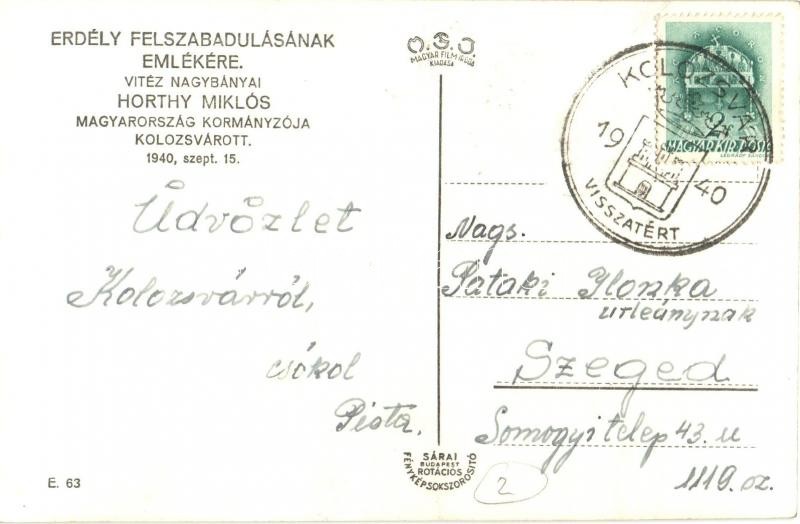 ERDÉLY FELSZABADULÁSÁNAK
EMLÉKÉRE.
VITÉZ NAGYBÁNYAI
HORTHY MIKLÓS
MAGYARORSZÁG KORMÁNYZÓJA
KOLOZSVÁROTT.
1940, szept. 15.
Üdvözlet
Kolozsvárról,
csókol
Pista.
E. 63
MAGYAR FILM IRODA
KIADÁSA
SÁRAI
BUDAPEST
ROTÁCIÓS
FÉNYKÉPSOKSZOROSITÓ
2
KOLOZSVÁR
19 40
VISSZATÉRT
2
MAGYAR KIR. POSTA
Nags.
Pataki Ilonka
urleánynak
Szeged
Somogyi telep 43. u
1119. sz.